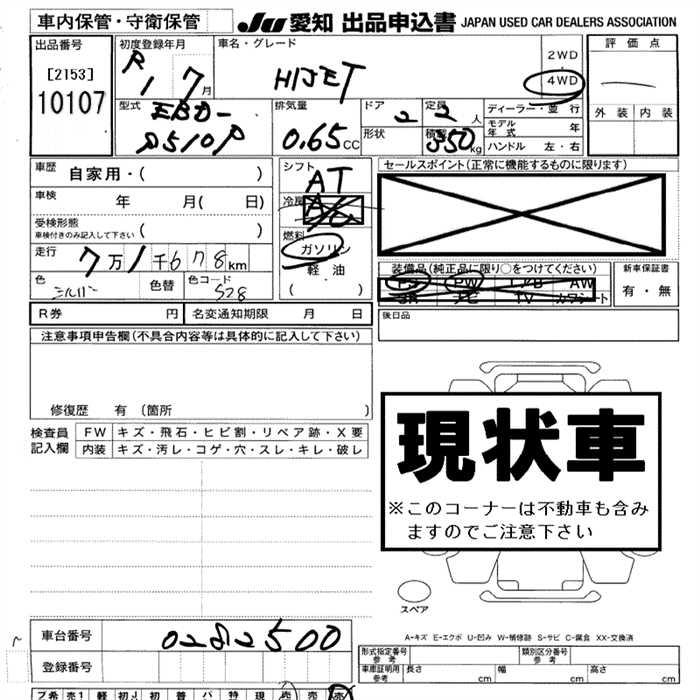 車内保管・守衛保管 JU 愛知 出品申込書 JAPAN USED CAR DEALERS ASSOCIATION
出品番号
[2153]
10107
初度登録年月
R 1 年 7 月
車名・グレード
HIJET
2WD
4WD
評価点
外装 内装
型式
EBD-
S510P
排気量
0.65 CC
ドア
2
定員
2 人
形状
積載
350 kg
ディーラー・並行
モデル年式 年
ハンドル 左・右
車歴
自家用・( )
車検 年 月( 日)
受検形態
車検付きのみ記入して下さい ( )
走行
7万1千678km
色
シルバー
色替
色コード
S28
シフト
AT
冷房
A/C
燃料
ガソリン
軽油
( )
セールスポイント(正常に機能するものに限ります)
装備品(純正品に限り○をつけてください)
PS PW エアB AW
SR ナビ TV カワシート
新車保証書
有・無
R券 円 名変通知期限 月 日
後日品
注意事項申告欄(不具合内容等は具体的に記入して下さい)
修復歴 有 (箇所 )
検査員
記入欄
FW キズ・飛石・ヒビ割・リペア跡・X要
内装 キズ・汚レ・コゲ・穴・スレ・キレ・破レ
現状車
※このコーナーは不動車も含み
ますのでご注意下さい
スペア
A-キズ E-エクボ U-凹み W-補修跡 S-サビ C-腐食 XX-交換済
車台番号
0282500
登録番号
形式指定番号
参考
類別区分番号
参考
車庫証明用
参考
長さ cm 幅 cm 高さ cm